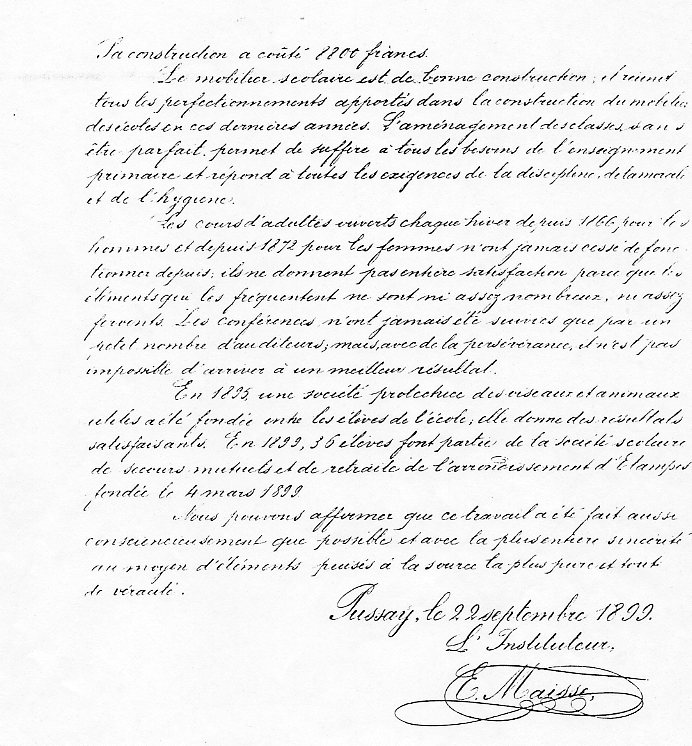 Sa construction a coûté 8800 francs.
Le mobilier scolaire est de bonne construction ; il réunit
tous les perfectionnements apportés dans la construction du mobilier
des écoles en ces dernières années. L'aménagement des classes, sans
être parfait, permet de suffire à tous les besoins de l'enseignement
primaire et répond à toutes les exigences de la discipline, de la morale
et de l'hygiène.
Les cours d'adultes ouverts chaque hiver depuis 1866 pour les
hommes et depuis 1872 pour les femmes n'ont jamais cessé de fonc
tionner depuis ; ils ne donnent pas entière satisfaction parce que les
éléments qui les fréquentent ne sont ni assez nombreux, ni assez
fervents. Les conférences n'ont jamais été suivies que par un
petit nombre d'auditeurs ; mais, avec de la persévérance, il n'est pas
impossible d'arriver à un meilleur résultat.
En 1895, une société protectrice des oiseaux et animaux
utiles a été fondée entre les élèves de l'école ; elle donne des résultats
satisfaisants. En 1899, 36 élèves font partie de la société scolaire
de secours mutuels et de retraite de l'arrondissement d'Etampes
fondée le 4 mars 1899.
Nous pouvons affirmer que ce travail a été fait aussi
consciencieusement que possible et avec la plus entière sincérité
au moyen d'éléments puisés à la source la plus pure et tout
de véracité.
Pussay, le 22 septembre 1899.
L'Instituteur,
E. Maisse,